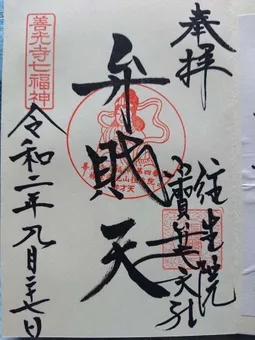 奉拝
往生院
弁財天
善光寺七福神
令和二年九月二十七日